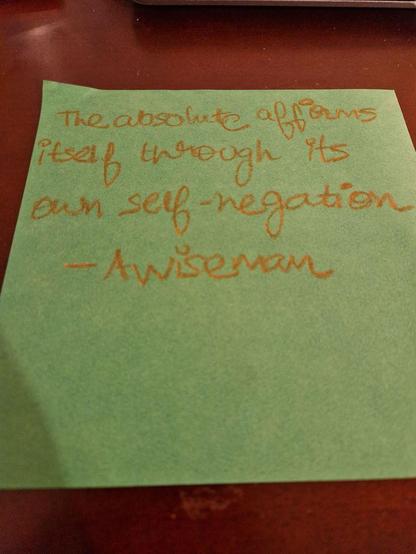 The absolute affirms
itself through its
own self-negation
- A wiseman